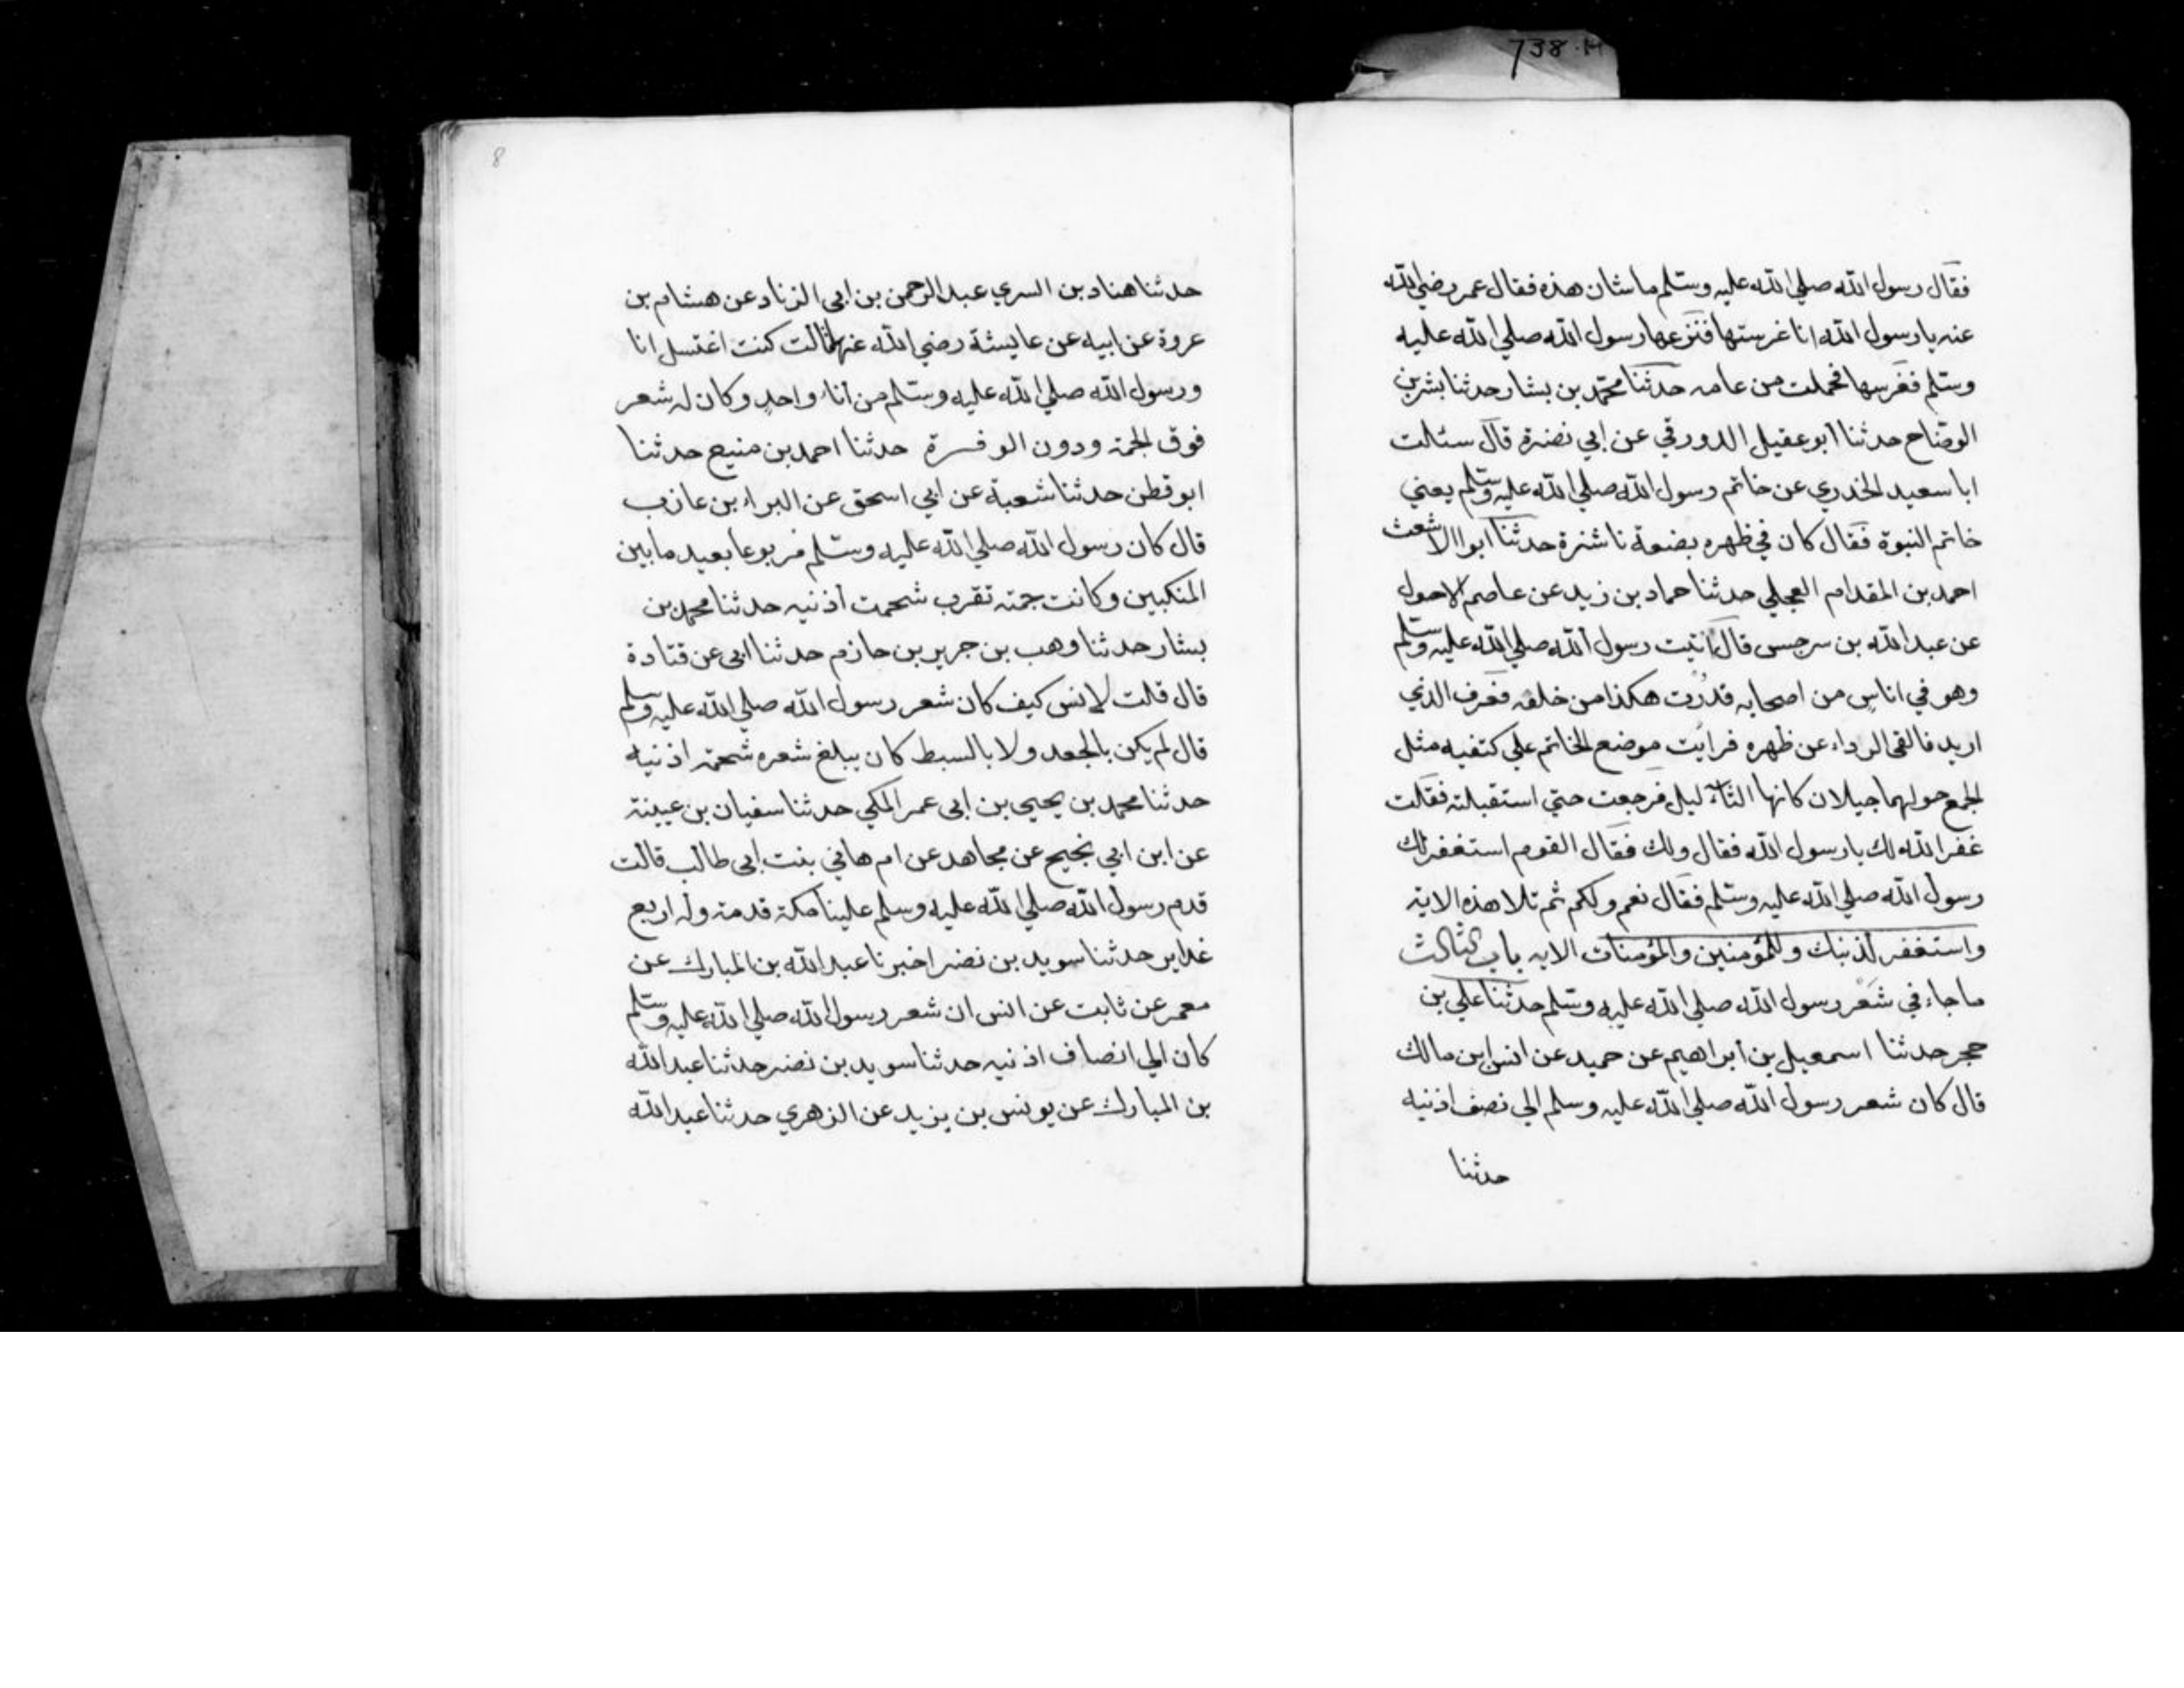 738.H
فقال رسول الله صلي الله عليه وسلم ماشان هذه فقال عمر رضي الله
عنه يا رسول الله انا غرستها فنزعها رسول الله صلي الله عليه
وسلم فغرسها فحملت من عامه حدثنا محمد بن بشار حدثنا بشر بن
الوضاح حدثنا ابو عقيل الدورقي عن ابي نضرة قال سئلت
ابا سعيد الخدري عن خاتم رسول الله صلي الله عليه وسلم يعني
خاتم النبوة فقال كان في ظهره بضعة ناشزة حدثنا ابوا الاشعث
احمد بن المقدام العجلي حدثنا حماد بن زيد عن عاصم الاحول
عن عبد الله بن سرجس قال اتيت رسول الله صلي الله عليه وسلم
وهو في اناس من اصحابه قدرت هكذا من خلفه فعرف الذي
اريد فالقى الرداء عن ظهره فرايت موضع الخاتم علي كتفيه مثل
الجمع حولهما جيلان كانها الثاليل فرجعت حتي استقبلته فقلت
غفر الله لك يا رسول الله فقال ولك فقال القوم استغفر لك
رسول الله صلي الله عليه وسلم فقال نعم ولكم ثم تلا هذه الاية
واستغفر لذنبك وللمؤمنين والمؤمنات الايه باب الثالث
ما جاء في شعر رسول الله صلي الله عليه وسلم حدثنا علي بن
حجر حدثنا اسمعيل بن ابراهيم عن حميد عن انس ابن مالك
قال كان شعر رسول الله صلي الله عليه وسلم الي نصف اذنيه
حدثنا
8
حدثنا هناد بن السري عبد الرحمن بن ابي الزناد عن هشام بن
عروة عن ابيه عن عايشة رضي الله عنها قالت كنت اغتسل انا
ورسول الله صلي الله عليه وسلم من اناء واحد وكان له شعر
فوق الجمة ودون الوفرة حدثنا احمد بن منيع حدثنا
ابو قطن حدثنا شعبة عن ابي اسحق عن البراء بن عازب
قال كان رسول الله صلي الله عليه وسلم مربوعا بعيد ما بين
المنكبين وكانت جمته تقرب شحمت اذنيه حدثنا محمد بن
بشار حدثنا وهب بن جرير بن حازم حدثنا ابي عن قتادة
قال قلت لانس كيف كان شعر رسول الله صلي الله عليه وسلم
قال لم يكن بالجعد ولا بالسبط كان يبلغ شعره شحمة اذنيه
حدثنا محمد بن يحيى بن ابي عمر المكي حدثنا سفيان بن عيينة
عن ابن ابي نجيح عن مجاهد عن ام هاني بنت ابي طالب قالت
قدم رسول الله صلي الله عليه وسلم علينا مكة قدمة وله اربع
غداير حدثنا سويد بن نضر اخبرنا عبد الله بن المبارك عن
معمر عن ثابت عن انس ان شعر رسول الله صلي الله عليه وسلم
كان الي انصاف اذنيه حدثنا سويد بن نضر حدثنا عبد الله
بن المبارك عن يونس بن يزيد عن الزهري حدثنا عبد الله